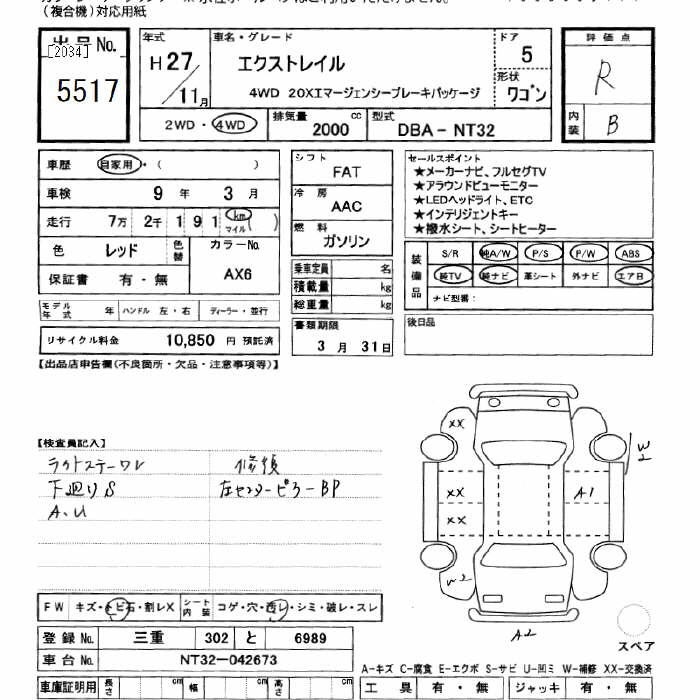 (複合機)対応用紙
出品 No.
[2034]
5517
年式
H27/11月
車名・グレード
エクストレイル
4WD 20Xエマージェンシーブレーキパッケージ
ドア
5
形状
ワゴン
評価点
R
内装
B
2WD・4WD
排気量
2000 cc
型式
DBA-NT32
車歴 自家用・( )
車検 9年 3月
走行 7万 2千 1 9 1 km マイル( )
色 レッド 色替
カラーNo.
AX6
保証書 有・無
シフト
FAT
冷房
AAC
燃料
ガソリン
乗車定員 名
積載量 kg
総重量 kg
セールスポイント
★メーカーナビ、フルセグTV
★アラウンドビューモニター
★LEDヘッドライト、ETC
★インテリジェントキー
★撥水シート、シートヒーター
装備品
S/R 純A/W P/S P/W ABS
純TV 純ナビ 革シート 外ナビ エアB
ナビ型番:
モデル年式 年 ハンドル 左・右 ディーラー・並行
リサイクル料金 10,850 円 預託済
書類期限
3月 31日
後日品
【出品店申告欄(不良箇所・欠品・注意事項等)】
【検査員記入】
ラクトステーワレ 修復
下廻りS 左センターピラーBP
A.U
XX
W2
XX
A1
XX
W2
A2
スペア
FW キズ・トビ石・割レX
シート内装 コゲ・穴・透レ・シミ・破レ・スレ
登録No. 三重 302 と 6989
車台No. NT32-042673
A-キズ C-腐食 E-エクボ S-サビ U-凹ミ W-補修 XX-交換済
車庫証明用 長さ cm 幅 cm 高さ cm
工具 有・無 ジャッキ 有・無